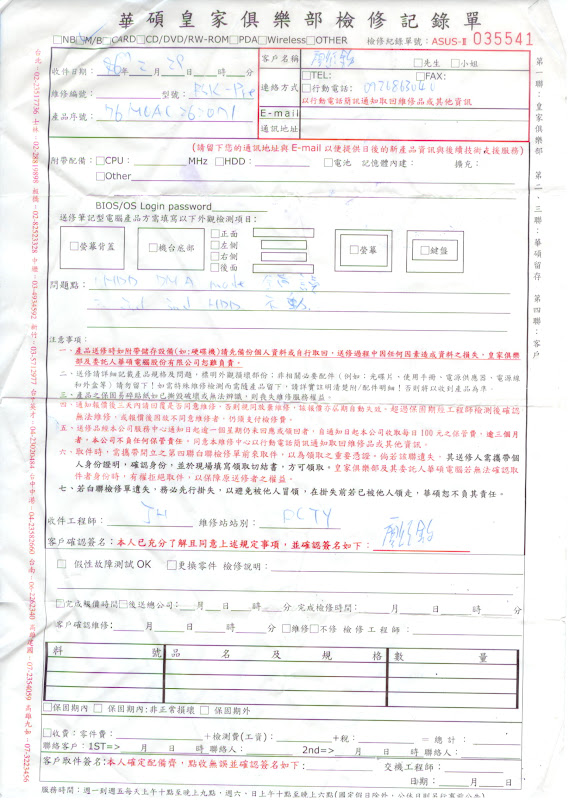 華碩皇家俱樂部檢修記錄單
□NB□M/B□CARD□CD/DVD/RW-ROM□PDA□Wireless□OTHER 檢修紀錄單號：ASUS-II 035541
收件日期： 年 月 日 時 分
客戶名稱 □先生 □小姐
維修編號： 型號：
聯絡方式 □TEL: □FAX:
□行動電話:
以行動電話簡訊通知取回維修品或其他資訊
產品序號：
E-mail
通訊地址
(請留下您的通訊地址與 E-mail 以便提供日後的新產品資訊與後續技術支援服務)
附帶配備：□CPU： MHz □HDD： □電池 記憶體內建： 擴充：
□Other
BIOS/OS Login password
送修筆記型電腦產品方需填寫以下外觀檢測項目：
□螢幕背蓋 □機台底部 □正面 □左側 □右側 □後面 □螢幕 □鍵盤
問題點： HDD DMA mode
HDD
注意事項：
一、產品送修時如附帶儲存設備(如:硬碟機)請先備份個人資料或自行取回，送修過程中因任何因素造成資料之損失，皇家俱樂部及委託人華碩電腦股份有限公司恕難負責。
二、送修請詳細記載產品規格及問題，標明外觀損壞部份；非相關必要配件(例如：光碟片、使用手冊、電源供應器、電源線和外盒等)請勿留下！如需特殊維修檢測而需隨產品留下，請詳實註明清楚附/配件明細！否則將以收到產品為準。
三、產品之保固易碎貼紙如已撕毀破壞或無法辨識，則喪失維修服務權益。
四、通知報價後三天內請回覆是否同意維修，否則視同放棄維修，該報價亦屆期自動失效。超過保固期經工程師檢測後確認無法維修，或報價後因故不同意維修者，仍須支付檢修費。
五、送修品經本公司服務中心通知日起逾一個星期仍未回應或領回者，自通知日起本公司收取每日 100 元之保管費，逾三個月者，本公司不負任何保管責任，同意本維修中心以行動電話簡訊通知取回維修品或其他資訊。
六、取件時，需攜帶開立之第四聯白聯檢修單前來取件，以為領取之重要憑證。倘若該聯遺失，其送修人需攜帶個人身份證明，確認身份，並於現場填寫領取切結書，方可領取。皇家俱樂部及其委託人華碩電腦若無法確認取件者身份時，有權拒絕取件，以保障原送修者之權益。
七、若白聯檢修單遺失，務必先行掛失，以避免被他人冒領，在掛失前若已被他人領走，華碩恕不負其責任。
收件工程師： JH 維修站站別： PCTY
客戶確認簽名：本人已充分了解且同意上述規定事項，並確認簽名如下：
□ 假性故障測試 OK □更換零件 檢修說明：
□完成報價時間□後送總公司: 月 日 時 分 完成檢修時間： 月 日 時 分
客戶確認維修: 月 日 時 分 □維修□不修 檢修工程師：
料 號 品 名 及 規 格 數 量
□保固期內 □ 保固期內:非正常損壞 □ 保固期外
□收費：零件費： +檢測費(工資)： +稅： = 總 計：
聯絡客戶：1ST=> 月 日 時 聯絡人: 2nd=> 月 日 時 聯絡人:
客戶取件簽名:本人確定配備齊，點收無誤並確認簽名如下： 交機工程師：
日期： 月 日
服務時間：週一到週五每天上午十點至晚上九點，週六、日上午十點至晚上六點(國定假日除外，公休日則另行事前公告)
第一聯：皇家俱樂部 第二、三聯：華碩留存 第四聯：客戶